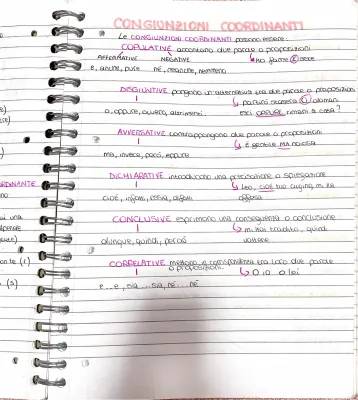 CONGIUNZIONI COORDINANTI
Le CONGIUNZIONI COORDINANTI possono essere:
COPULATIVE accostano due parole o proposizioni
AFFERMATIVE NEGATIVE ho fame e sete
e, anche, pure né, neanche, nemmeno
DISGIUNTIVE pongono un'alternativa tra due parole o proposizioni
o domani
o, oppure, ovvero, altrimenti esci OPPURE rimani a casa?
AVVERSATIVE contrappongono due parole o proposizioni
è gentile MA
ma, invece, però, eppure
DICHIARATIVE introducono una precisazione o spiegazione
cioè tuo cugino, mi ha
cioè, infatti, ossia, difatti offeso
CONCLUSIVE esprimono una conseguenza o conclusione
m'hai tradito, quindi
dunque, quindi, perciò
CORRELATIVE mettono in corrispondenza tra loro due parole
o proposizioni. O io o lei
e...e, sia...sia, né...né
ORDINANTE